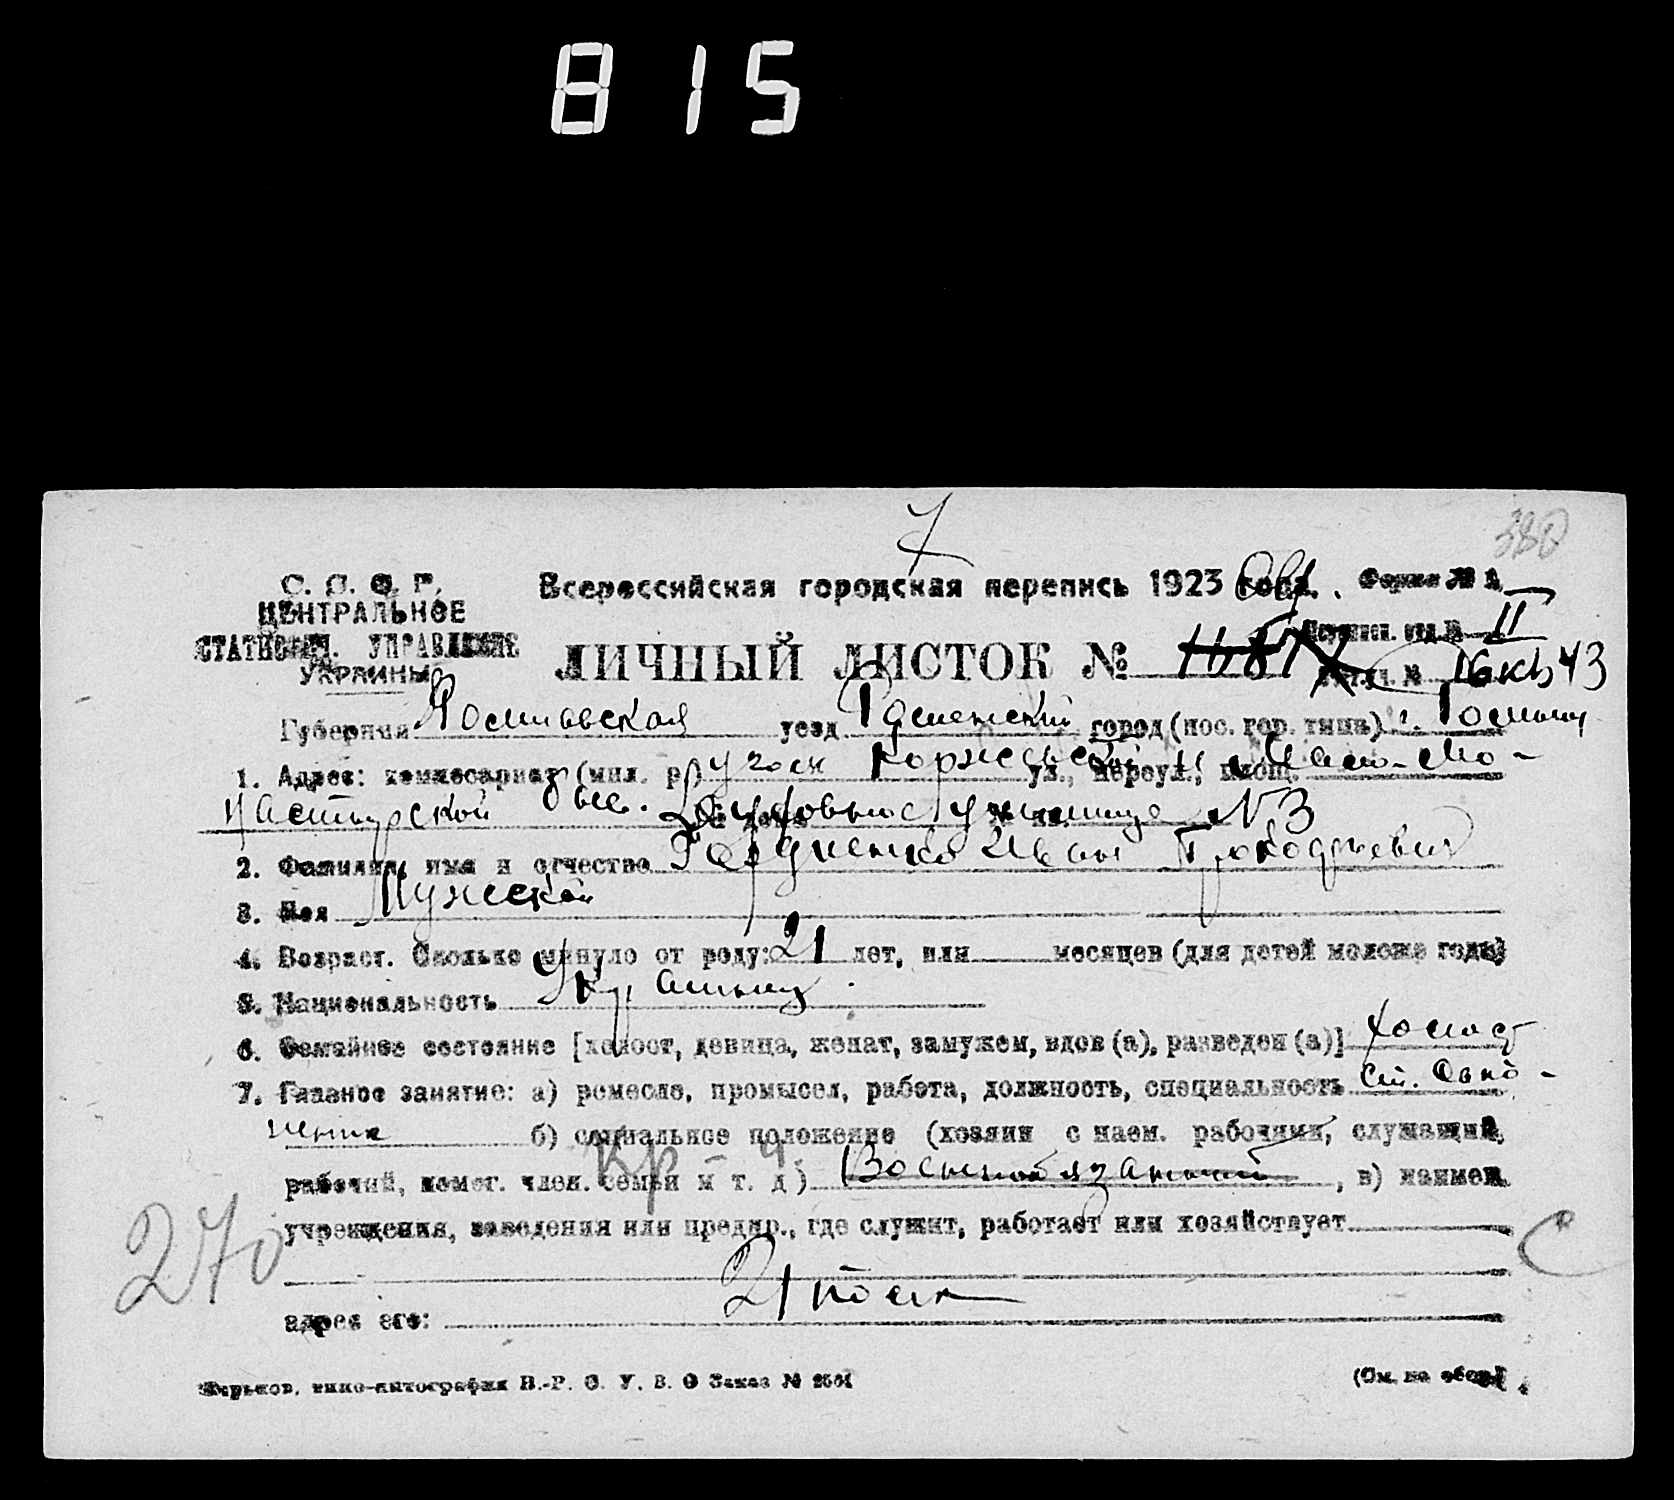 815
7
380
С. С. С. Р.
Всероссийская городская перепись 1923 года. Форма № 1
ЦЕНТРАЛЬНОЕ
СТАТИСТИЧ. УПРАВЛЕНИЕ
II
УКРАИНЫ
ЛИЧНЫЙ ЛИСТОК №
43
Губерния Полтавская уезд Роменский город (пос. гор. типа) г. Ромны
1. Адрес: комиссариат (мил. р.) ул., переул., площ.
№ 3
2. Фамилия, имя и отчество Гордиенко Иван
3. Пол Мужской
4. Возраст. Сколько минуло от роду: 21 лет, или месяцев (для детей моложе года)
5. Национальность Украинец
6. Семейное состояние [холост, девица, женат, замужем, вдов (а), разведен (а)] холост
7. Главное занятие: а) ремесло, промысел, работа, должность, специальность
б) социальное положение (хозяин с наем. рабочими, служащий,
рабочий, помог. член. семьи и т. д.) Военнообязанный, в) наимен.
учреждения, заведения или предпр., где служит, работает или хозяйствует
270
21 полк
адрес его:
Харьков, типо-литография В.-Р. С. У. В. О Заказ №
(См. на обор.)